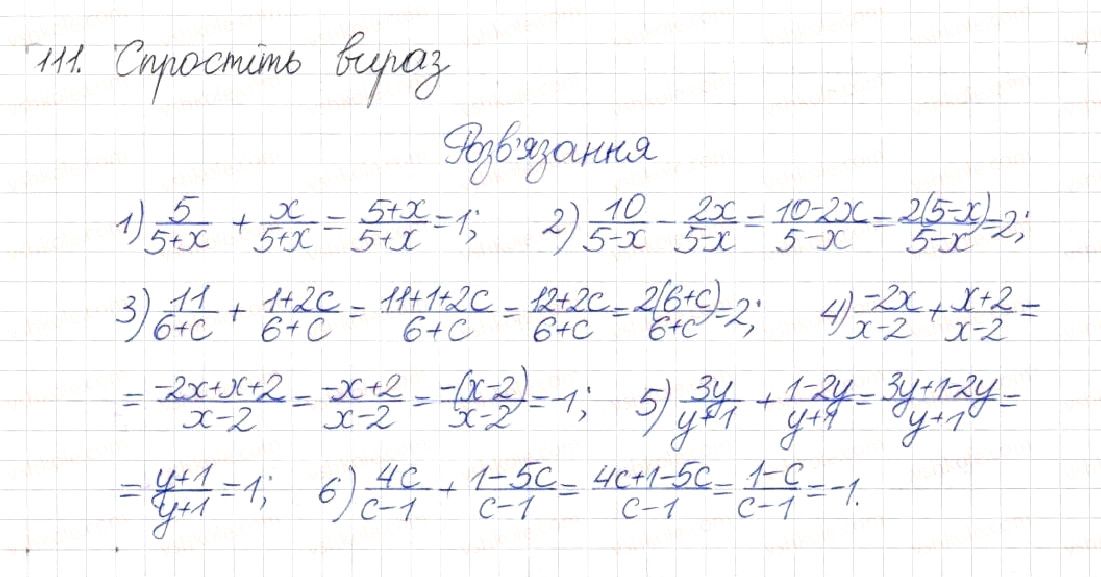 111. Спростіть вираз
Розв'язання
1) 5/(5+x) + x/(5+x) = (5+x)/(5+x) = 1; 2) 10/(5-x) - 2x/(5-x) = (10-2x)/(5-x) = 2(5-x)/(5-x) = 2;
3) 11/(6+c) + (1+2c)/(6+c) = (11+1+2c)/(6+c) = (12+2c)/(6+c) = 2(6+c)/(6+c) = 2; 4) -2x/(x-2) + (x+2)/(x-2) =
= (-2x+x+2)/(x-2) = (-x+2)/(x-2) = -(x-2)/(x-2) = -1; 5) 3y/(y+1) + (1-2y)/(y+1) = (3y+1-2y)/(y+1) =
= (y+1)/(y+1) = 1; 6) 4c/(c-1) + (1-5c)/(c-1) = (4c+1-5c)/(c-1) = (1-c)/(c-1) = -1.